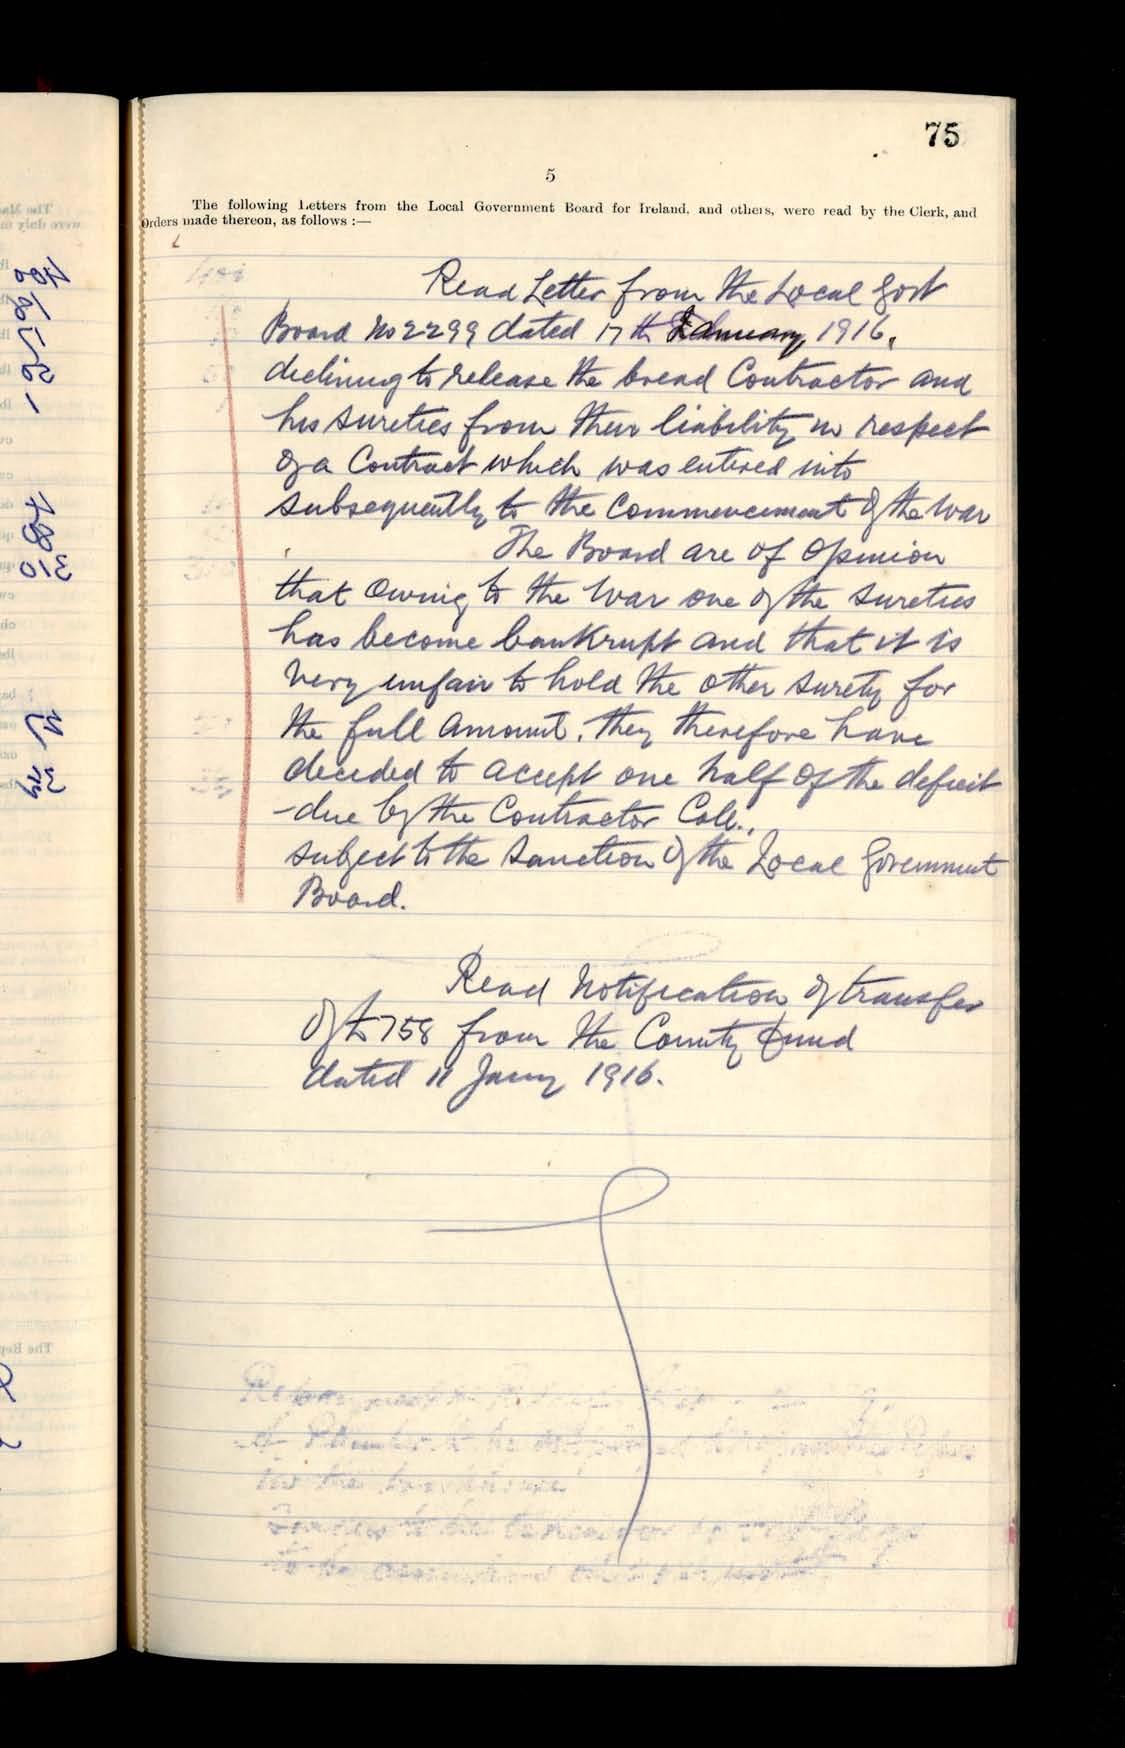 75
5
The following Letters from the Local Government Board for Ireland, and others, were read by the Clerk, and
Orders made thereon, as follows :—
Read Letter from the Local Govt
Board No 2299 dated 17th January 1916,
declining to release the bread Contractor and
his sureties from their liability in respect
of a Contract which was entered into
subsequently to the Commencement of the War
The Board are of Opinion
that Owing to the War one of the sureties
has become bankrupt and that it is
very unfair to hold the other surety for
the full amount, they therefore have
decided to accept one half of the deficit
due by the Contractor
subject to the Sanction of the Local Government
Board.
Read Notification of transfer
of £758 from the County Fund
dated 11 Jany 1916.